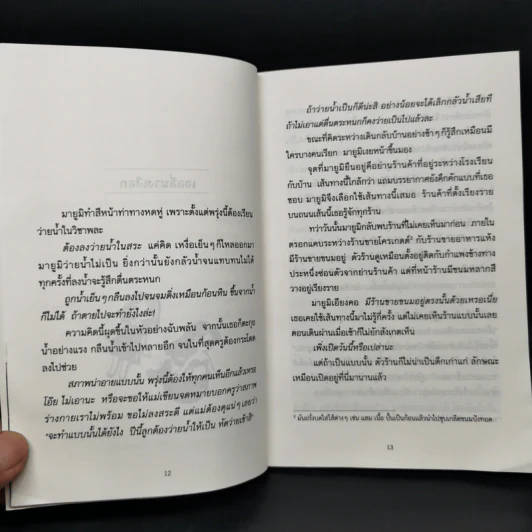 เจลลี่นางเงือก
มายูมิทำสีหน้าท่าทางหดหู่ เพราะตั้งแต่พรุ่งนี้ต้องเรียน
ว่ายน้ำในวิชาพละ
ต้องลงว่ายน้ำในสระ แค่คิด เหงื่อเย็นๆ ก็ไหลออกมา
มายูมิว่ายน้ำไม่เป็น ยิ่งกว่านั้นยังกลัวน้ำจนแทบทนไม่ได้
ทุกครั้งที่ลงน้ำจะรู้สึกตื่นตระหนก
ถูกน้ำเย็นๆ กลืนลงไปจนจมดิ่งเหมือนก้อนหิน ขึ้นจากน้ำ
ก็ไม่ได้ ถ้าตายไปจะทำยังไงล่ะ!
ความคิดนี้ผุดขึ้นในหัวอย่างฉับพลัน จากนั้นเธอก็ตะกุย
น้ำอย่างแรง กลืนน้ำเข้าไปหลายอึก จนในที่สุดครูต้องกระโดด
ลงไปช่วย
สภาพน่าอายแบบนั้น พรุ่งนี้ต้องให้ทุกคนเห็นอีกแล้วเหรอ
โอ๊ย ไม่เอานะ หรือจะขอให้แม่เขียนจดหมายบอกครูว่าสภาพ
ร่างกายเราไม่พร้อม ขอไม่ลงสระดี แต่แม่ต้องดุแน่ๆ เลยว่า
"จะทำแบบนั้นได้ยังไง ปีนี้ลูกต้องว่ายน้ำให้เป็น หัดว่ายเข้าสิ"
12
ถ้าว่ายน้ำเป็นก็ดีน่ะสิ อย่างน้อยจะได้เลิกกลัวน้ำเสียที
ถ้าไม่เอาแต่ตื่นตระหนกก็คงว่ายเป็นไปแล้วล่ะ
ขณะที่คิดระหว่างเดินกลับบ้านอย่างช้าๆ ก็รู้สึกเหมือนมี
ใครบางคนเรียก มายูมิเงยหน้าขึ้นมอง
จุดที่มายูมิยืนอยู่คือย่านร้านค้าที่อยู่ระหว่างโรงเรียน
กับบ้าน เส้นทางนี้ใกล้กว่า แถมบรรยากาศยังคึกคักแบบที่เธอ
ชอบ มายูมิจึงเลือกใช้เส้นทางนี้เสมอ ร้านค้าที่ตั้งเรียงราย
บนถนนเส้นนี้เธอรู้จักทุกร้าน
ทว่าวันนั้นมายูมิกลับพบร้านที่ไม่เคยเห็นมาก่อน ภายใน
ตรอกแคบระหว่างร้านขายโครเกตต์⁵ กับร้านขายอาหารแห้ง
มีร้านขายขนมอยู่ ตัวร้านดูเหมือนตั้งอยู่ติดกับกำแพงข้างทาง
ประหนึ่งซ่อนตัวจากย่านร้านค้า แต่ที่หน้าร้านมีขนมหลากสี
วางอยู่เรียงราย
มายูมิเอียงคอ มีร้านขายขนมอยู่ตรงนั้นด้วยเหรอเนี่ย
เธอเคยใช้เส้นทางนี้มาไม่รู้กี่ครั้ง แต่ไม่เคยเห็นร้านแบบนั้นเลย
ตอนเดินผ่านเมื่อเช้าก็ไม่ยักสังเกตเห็น
เพิ่งเปิดวันนี้หรือเปล่านะ
แต่ถ้าเป็นแบบนั้น ตัวร้านก็ไม่น่าเป็นตึกเก่าแก่ ลักษณะ
เหมือนเปิดอยู่ที่นี่มานานแล้ว
มันฝรั่งบดใส่ไส้ต่างๆ เช่น แฮม เนื้อ ปั้นเป็นก้อนแล้วนำไปชุบเกล็ดขนมปังทอด
13